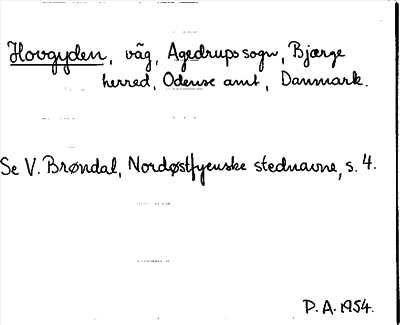 Hovgyden, väg, Agedrups sogn, Bjærge
herred, Odense amt, Danmark.
Se V. Brøndal, Nordøstfyenske stednavne, s. 4.
P. A. 1954.